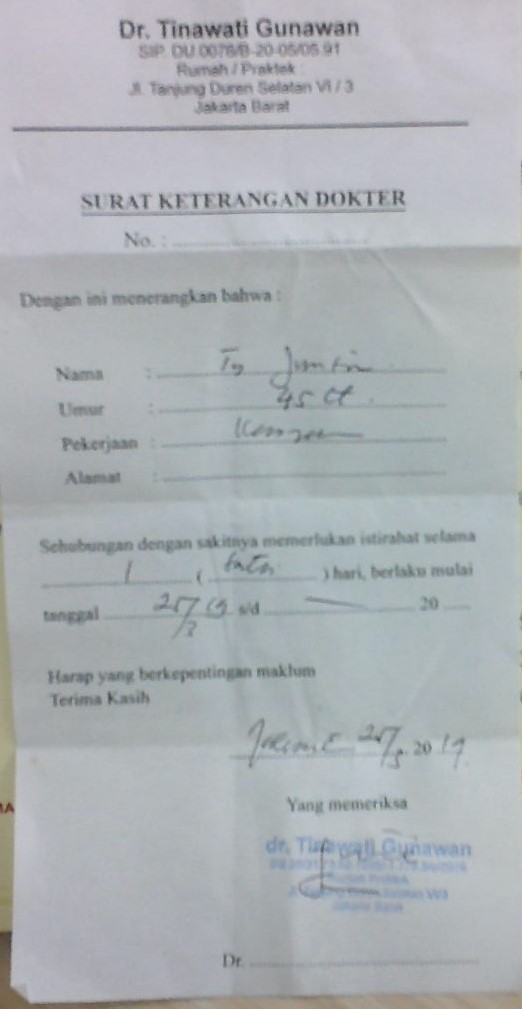 Dr. Tinawati Gunawan
SIP. DU.0076/B-20-05/05.91
Rumah / Praktek :
Jl. Tanjung Duren Selatan VI / 3
Jakarta Barat
SURAT KETERANGAN DOKTER
No. :
Dengan ini menerangkan bahwa :
Nama :
Umur : 45 th
Pekerjaan :
Alamat :
Sehubungan dengan sakitnya memerlukan istirahat selama
1 ( satu ) hari, berlaku mulai
tanggal 25/3 19 s/d — 20
Harap yang berkepentingan maklum
Terima Kasih
25/3 20 19
Yang memeriksa
dr. Tinawati Gunawan
Jakarta Barat
Dr.